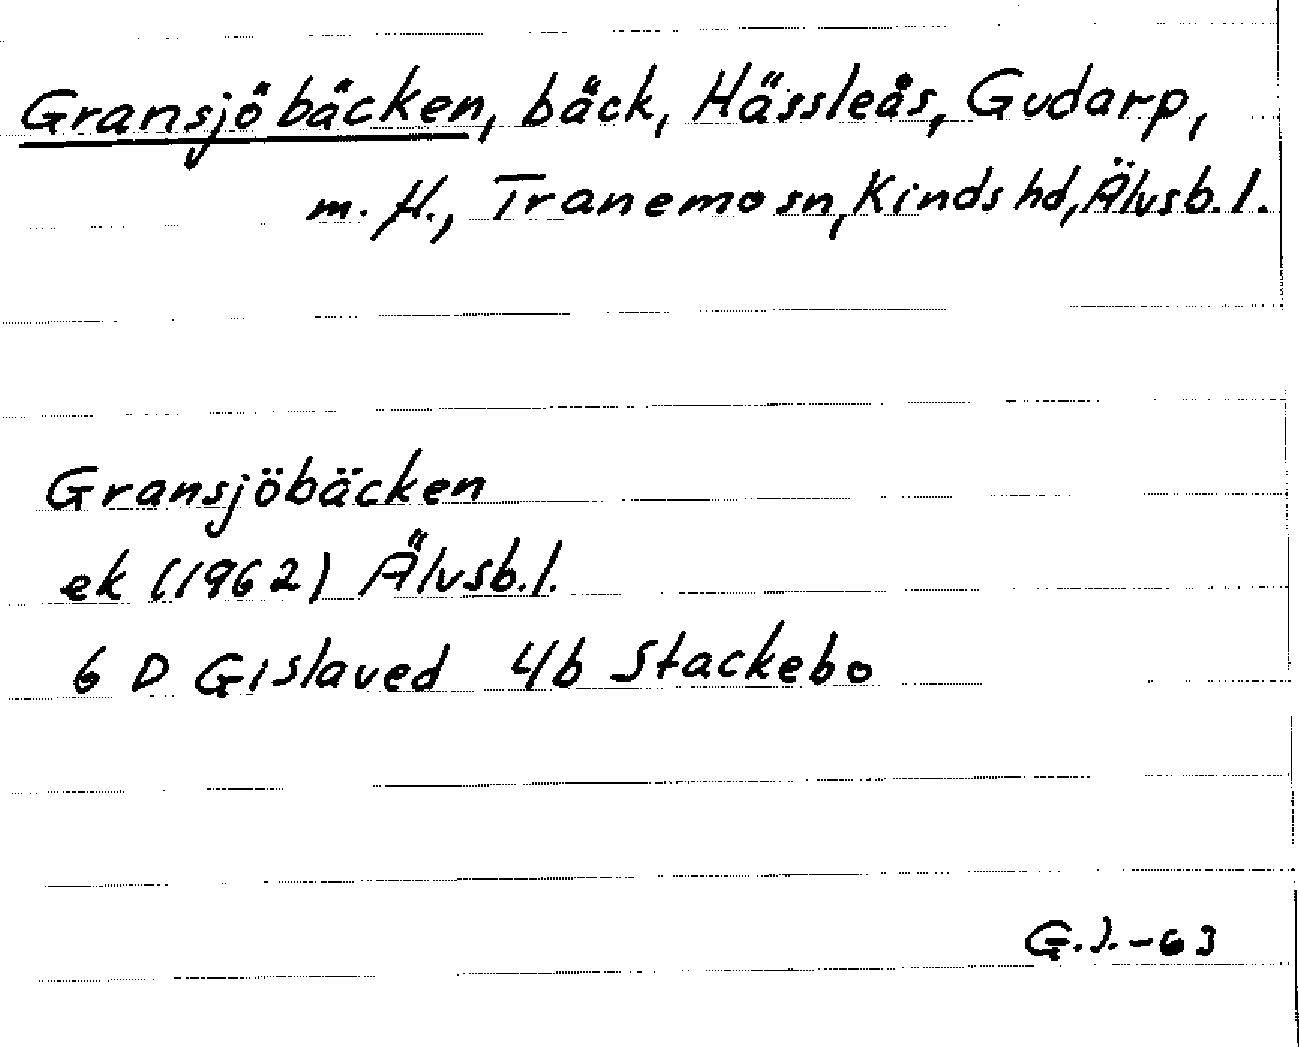 Gransjöbäcken, bäck, Hässleås, Gudarp,
m. fl., Tranemo sn, Kinds hd, Älvsb. l.
Gransjöbäcken
ek (1962) Älvsb. l.
6 D Gislaved 4b Stackebo
G.J.-63